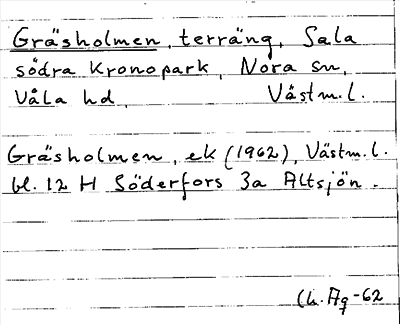 Gräsholmen, terräng, Sala
södra Kronopark, Nora sn,
Våla hd, Västm.l.
Gräsholmen, ek (1962), Västm.l.
bl. 12 H Söderfors 3a Altsjön.
-62